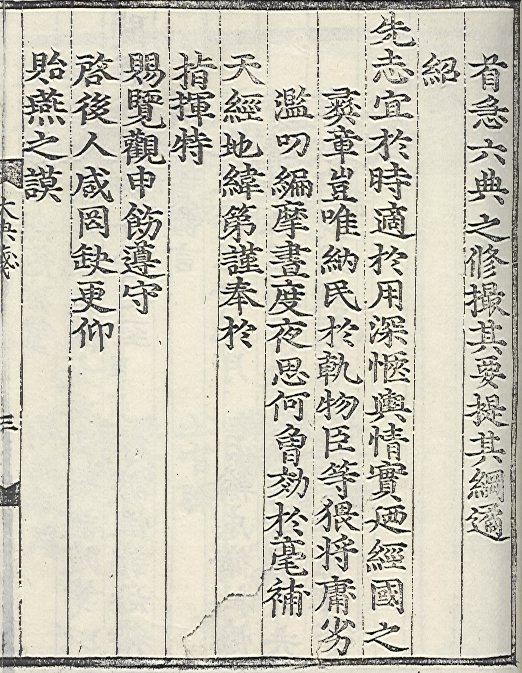 首急六典之修撮其要提其綱遹
紹
先志宜於時適於用深愜輿情實廼經國之
彛章豈唯納民於軌物臣等猥將庸劣
濫叨編摩晝度夜思何曾効於毫補
天經地緯第謹奉於
指揮特
賜覽觀申飭遵守
啓後人咸罔缺更仰
貽燕之謨
大典箋 三